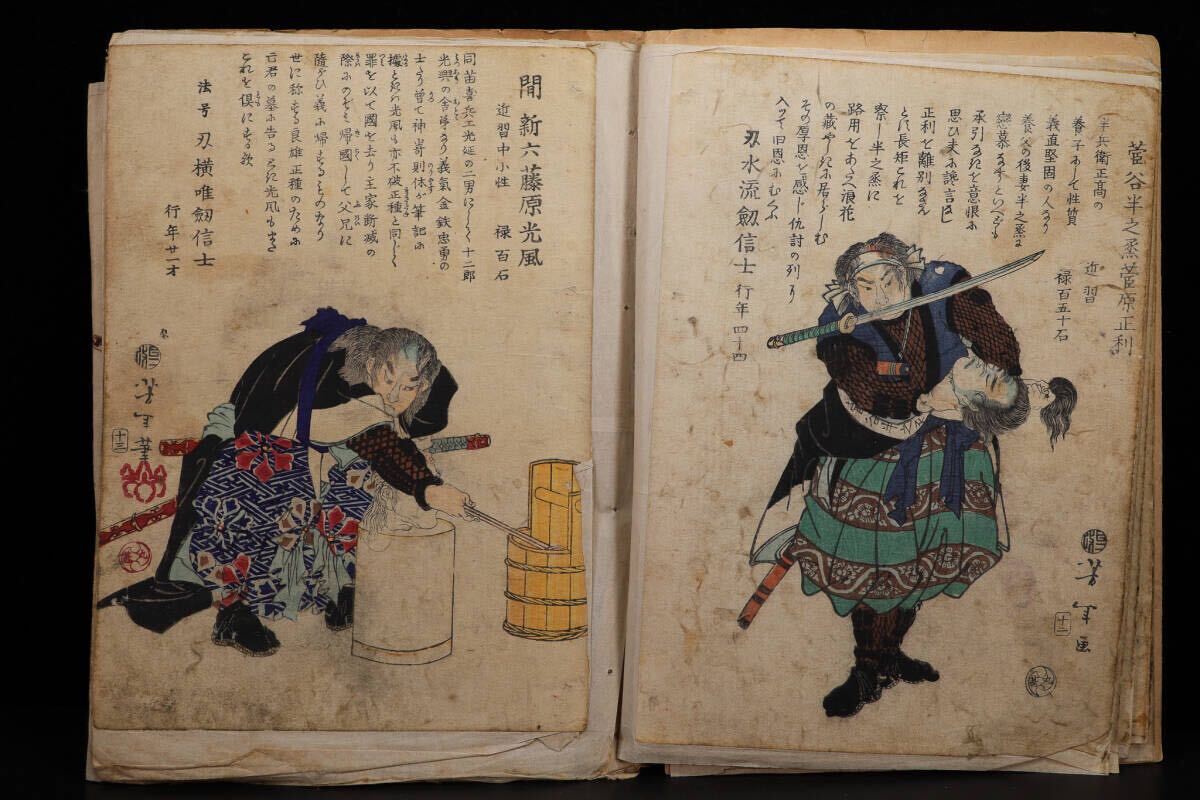 菅谷半之烝菅原正利
近習
禄百五十石
半兵衛正髙の
養子にして性質
義直堅固の人なり
養父の後妻半之烝に
戀慕なすといへども
承引なきを意恨に
思ひ夫に讒言なし
正利を離別なさん
とす長矩これを
察し半之烝に
路用をあたへ浪花
の藏やしきに居らしむ
その厚恩を感じ仇討の列に
入つて旧恩にむくふ
刃水流劔信士 行年四十四
芳年画
十二
間新六藤原光風
近習中小性 禄百石
同苗喜兵エ光延の二男にして十二郎
光興の舎弟なり義氣金鉄忠勇の
士なり曽て神嵜則休が筆記に
據ときは光風も亦不破正種と同じく
罪を以て國を去り主家断滅の
際にのぞみ帰國して父兄に
隨がひ義に帰するものなり
世に称する良雄正種のために
亡君の墓に告るとき光風もまた
これを倶にする歟
法号 刃横唯劔信士
行年廿一才
芳年筆
十三